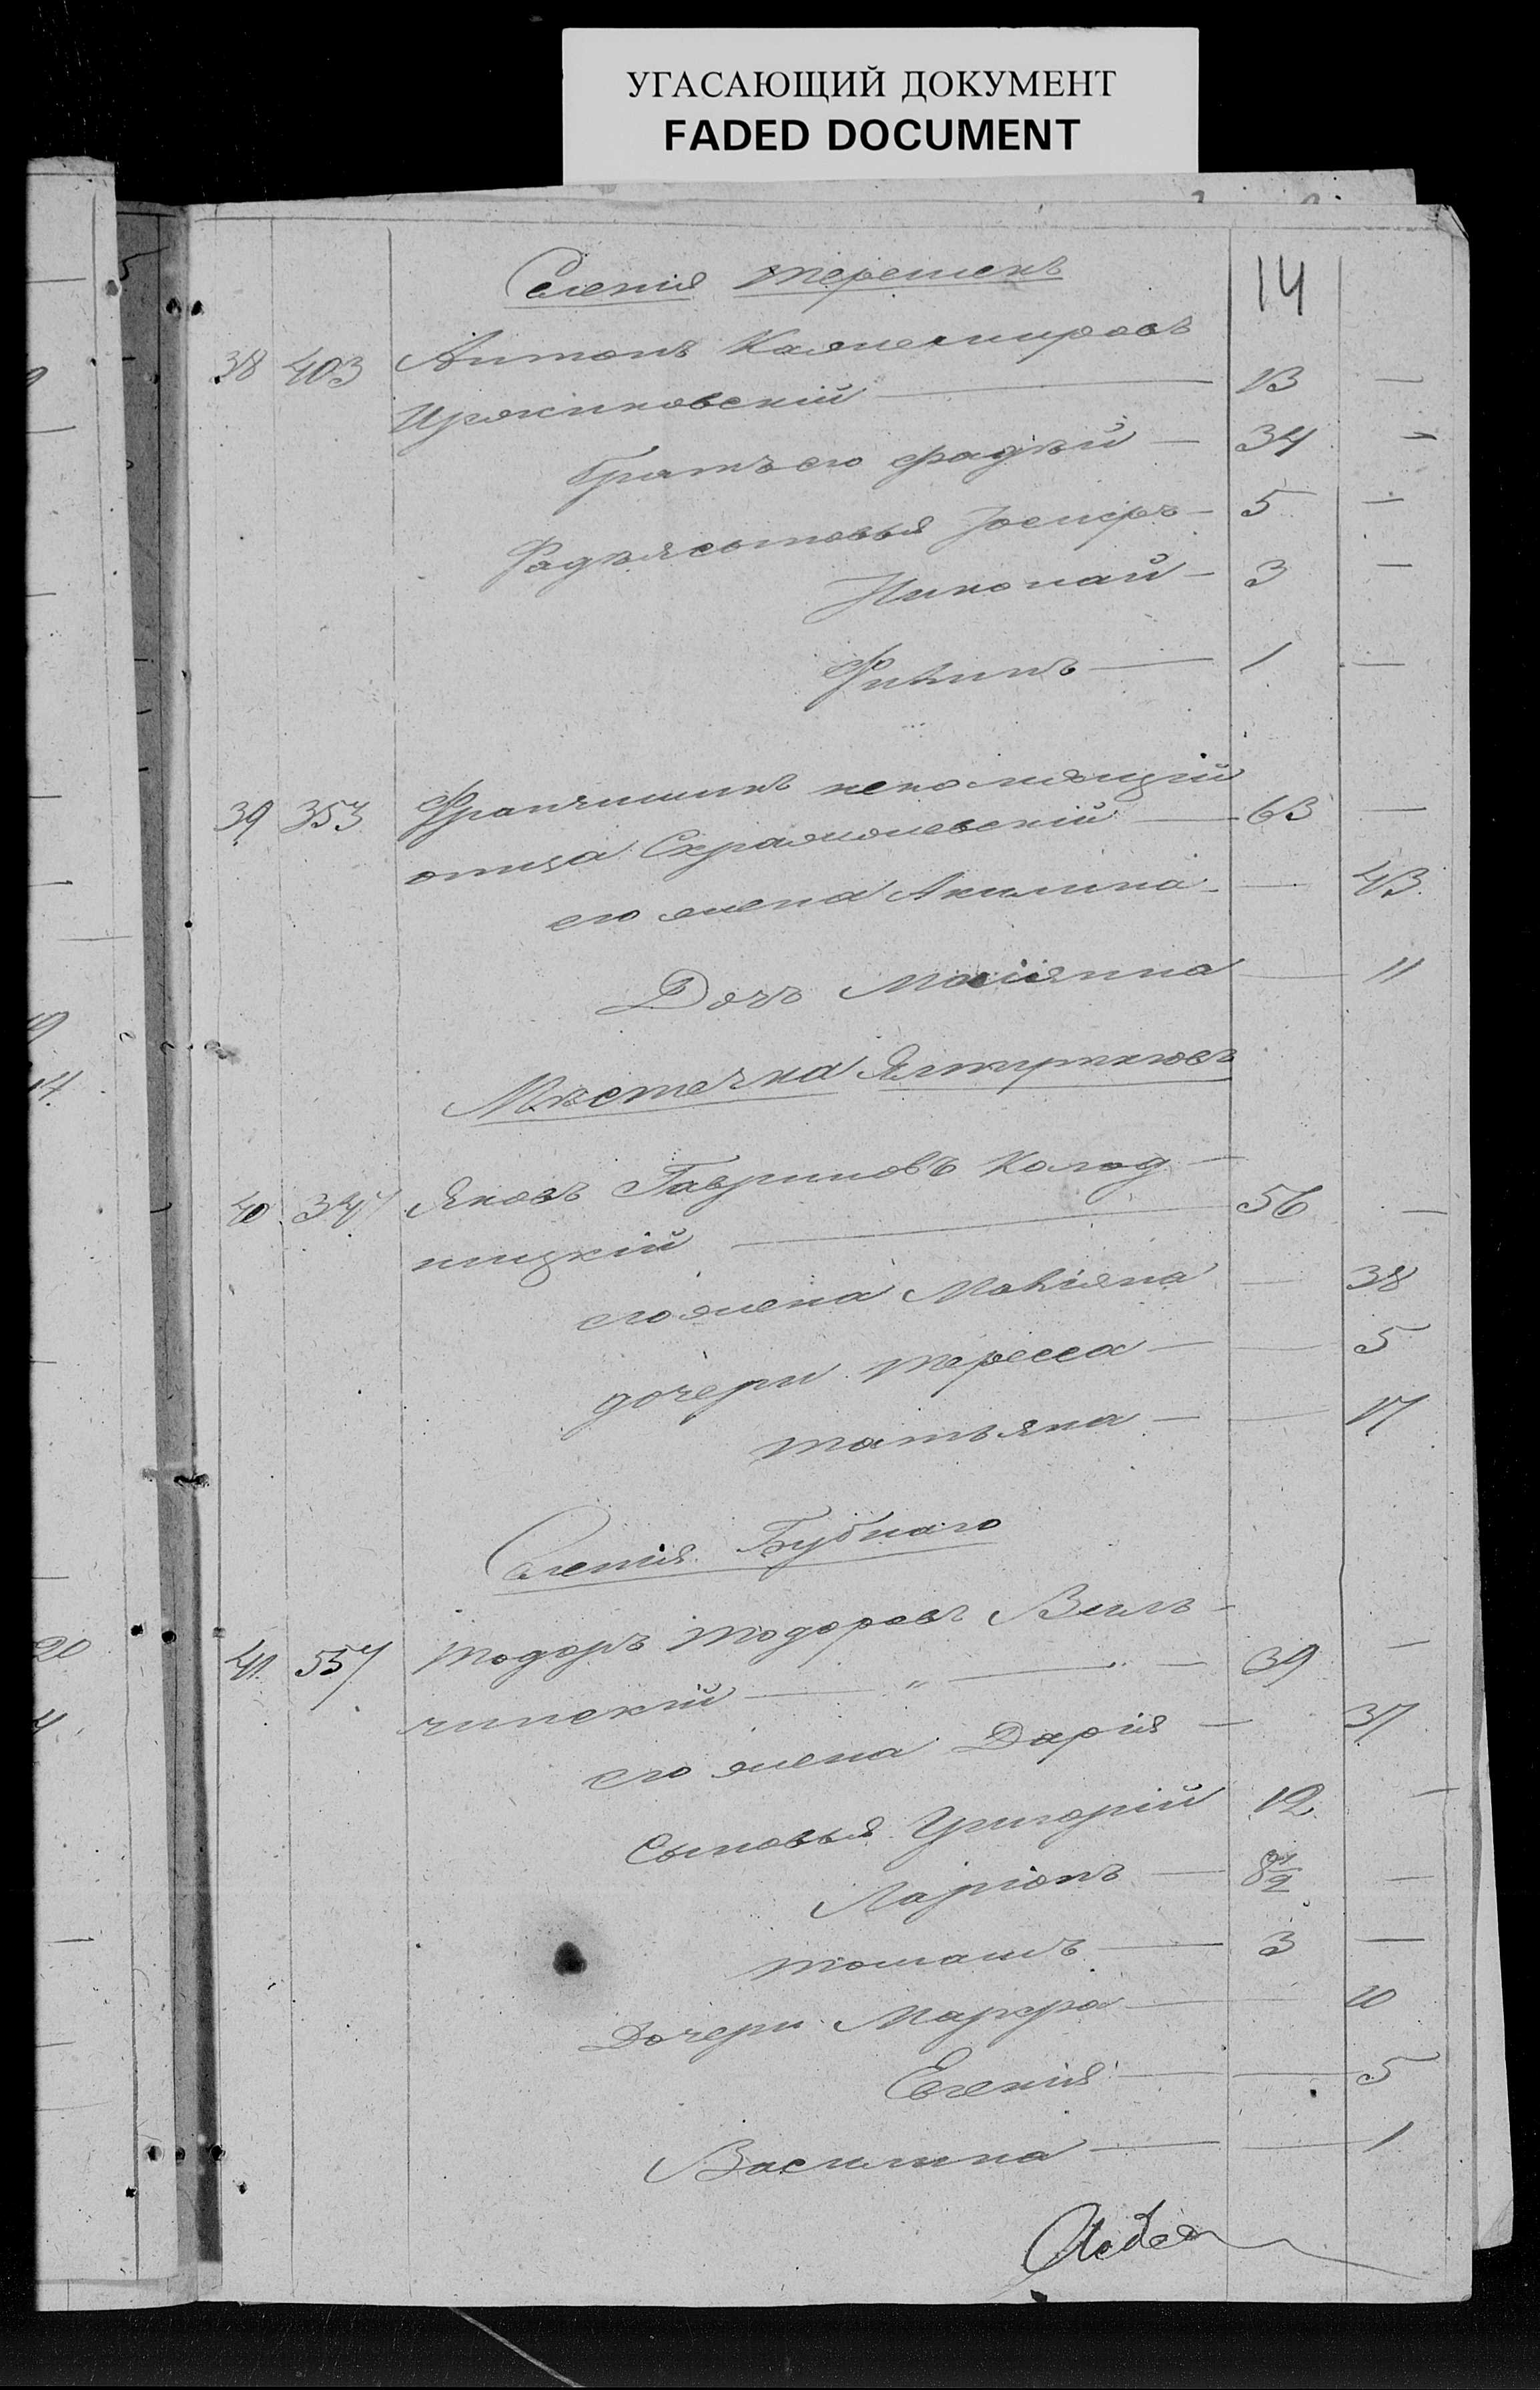 УГАСАЮЩИЙ ДОКУМЕНТ
FADED DOCUMENT
Селенія Терешекъ 14
38 403 Антонъ Казимировъ
13 —
братъ его Фадѣй — 34 —
Фадѣя сыновья Іосифъ — 5 —
Николай — 3 —
Филипъ — 1 —
39 353 Францишекъ непомнящій
отца 63 —
его жена Акилина — 43
Дочь Маріянна — 11
Мѣстечка Ялтушкова
40 347 Яковъ Гавриловъ Колод-
ницкій — 56 —
его жена Маріяна — 38
дочери Тересса — 5
Татьяна — 17
Селенія Бубнаго
41 557 Тодоръ Тодоровъ Виль-
чинскій — " — 39 —
его жена Дарія — 37
Сыновья Григорій 12 —
Ларіонъ — 8 1/2 —
Томашъ — 3 —
Дочери Марфа — 10
Евгенія — 5
Василина — 1